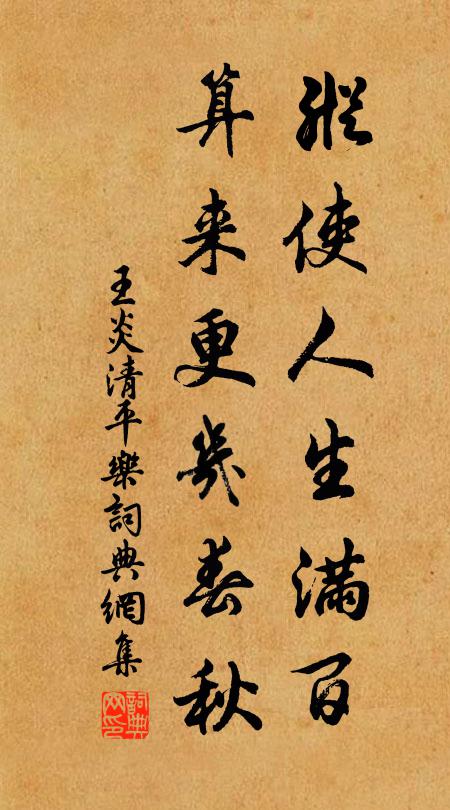 縱使人生滿百
算来更幾春秋
王炎清平樂詞典網集
詞典
网印